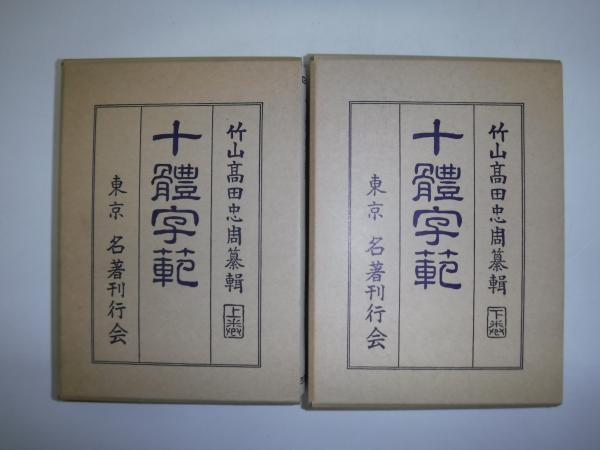 竹山髙田忠周纂輯
上卷
十體字範
東京 名著刊行会
竹山髙田忠周纂輯
下卷
十體字範
東京 名著刊行会